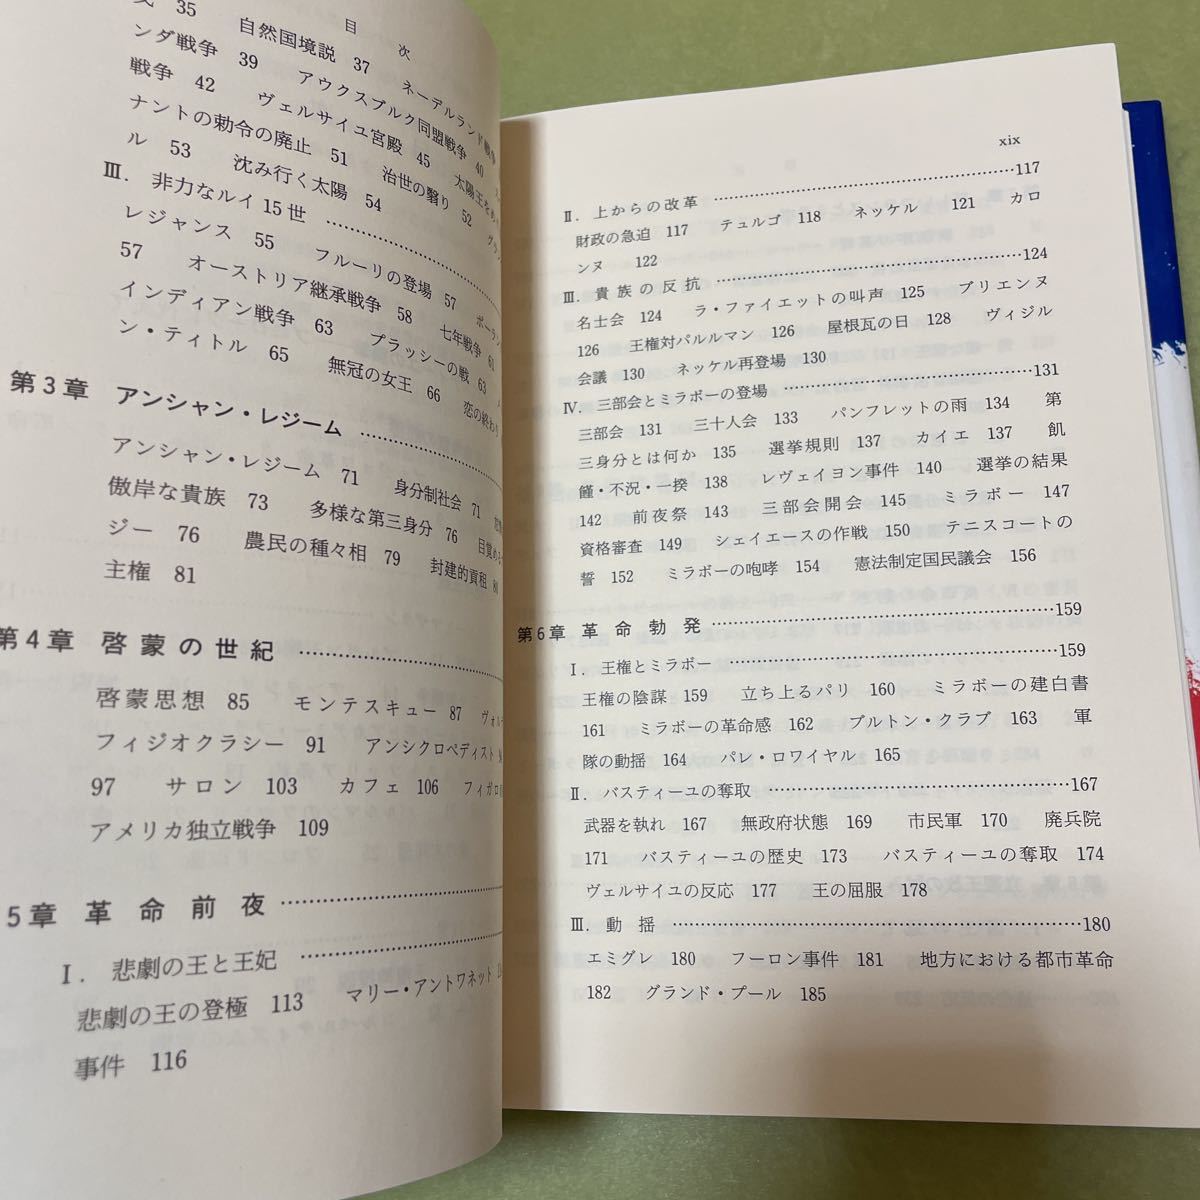 目次
35 自然国境説 37 ネーデルランド戦争
ンダ戦争 39 アウクスブルク同盟戦争 40
戦争 42 ヴェルサイユ宮殿 45 太陽王をめ
ナントの勅令の廃止 51 治世の翳り 52 グラン
ル 53 沈み行く太陽 54
Ⅲ. 非力なルイ15世
レジャンス 55 フルーリの登場 57 ポーラン
57 オーストリア継承戦争 58 七年戦争 61
インディアン戦争 63 プラッシーの戦 63
ン・ティトル 65 無冠の女王 66 恋の終わり
第3章 アンシャン・レジーム
アンシャン・レジーム 71 身分制社会 71
傲岸な貴族 73 多様な第三身分 76 目覚める
ジー 76 農民の種々相 79 封建的貢租 80
主権 81
第4章 啓蒙の世紀
啓蒙思想 85 モンテスキュー 87 ヴォル
フィジオクラシー 91 アンシクロペディスト
97 サロン 103 カフェ 106 フィガロ
アメリカ独立戦争 109
5章 革命前夜
Ⅰ. 悲劇の王と王妃
悲劇の王の登極 113 マリー・アントワネット
事件 116
xix
Ⅱ. 上からの改革 117
財政の急迫 117 テュルゴ 118 ネッケル 121 カロ
ンヌ 122
Ⅲ. 貴族の反抗 124
名士会 124 ラ・ファイエットの叫声 125 ブリエンヌ
126 王権対パルルマン 126 屋根瓦の日 128 ヴィジル
会議 130 ネッケル再登場 130
Ⅳ. 三部会とミラボーの登場 131
三部会 131 三十人会 133 パンフレットの雨 134 第
三身分とは何か 135 選挙規則 137 カイエ 137 飢
饉・不況・一揆 138 レヴェイヨン事件 140 選挙の結果
142 前夜祭 143 三部会開会 145 ミラボー 147
資格審査 149 シェイエースの作戦 150 テニスコートの
誓 152 ミラボーの咆哮 154 憲法制定国民議会 156
第6章 革命勃発 159
Ⅰ. 王権とミラボー 159
王権の陰謀 159 立ち上るパリ 160 ミラボーの建白書
161 ミラボーの革命感 162 ブルトン・クラブ 163 軍
隊の動揺 164 パレ・ロワイヤル 165
Ⅱ. バスティーユの奪取 167
武器を執れ 167 無政府状態 169 市民軍 170 廃兵院
171 バスティーユの歴史 173 バスティーユの奪取 174
ヴェルサイユの反応 177 王の屈服 178
Ⅲ. 動揺 180
エミグレ 180 フーロン事件 181 地方における都市革命
182 グランド・プール 185